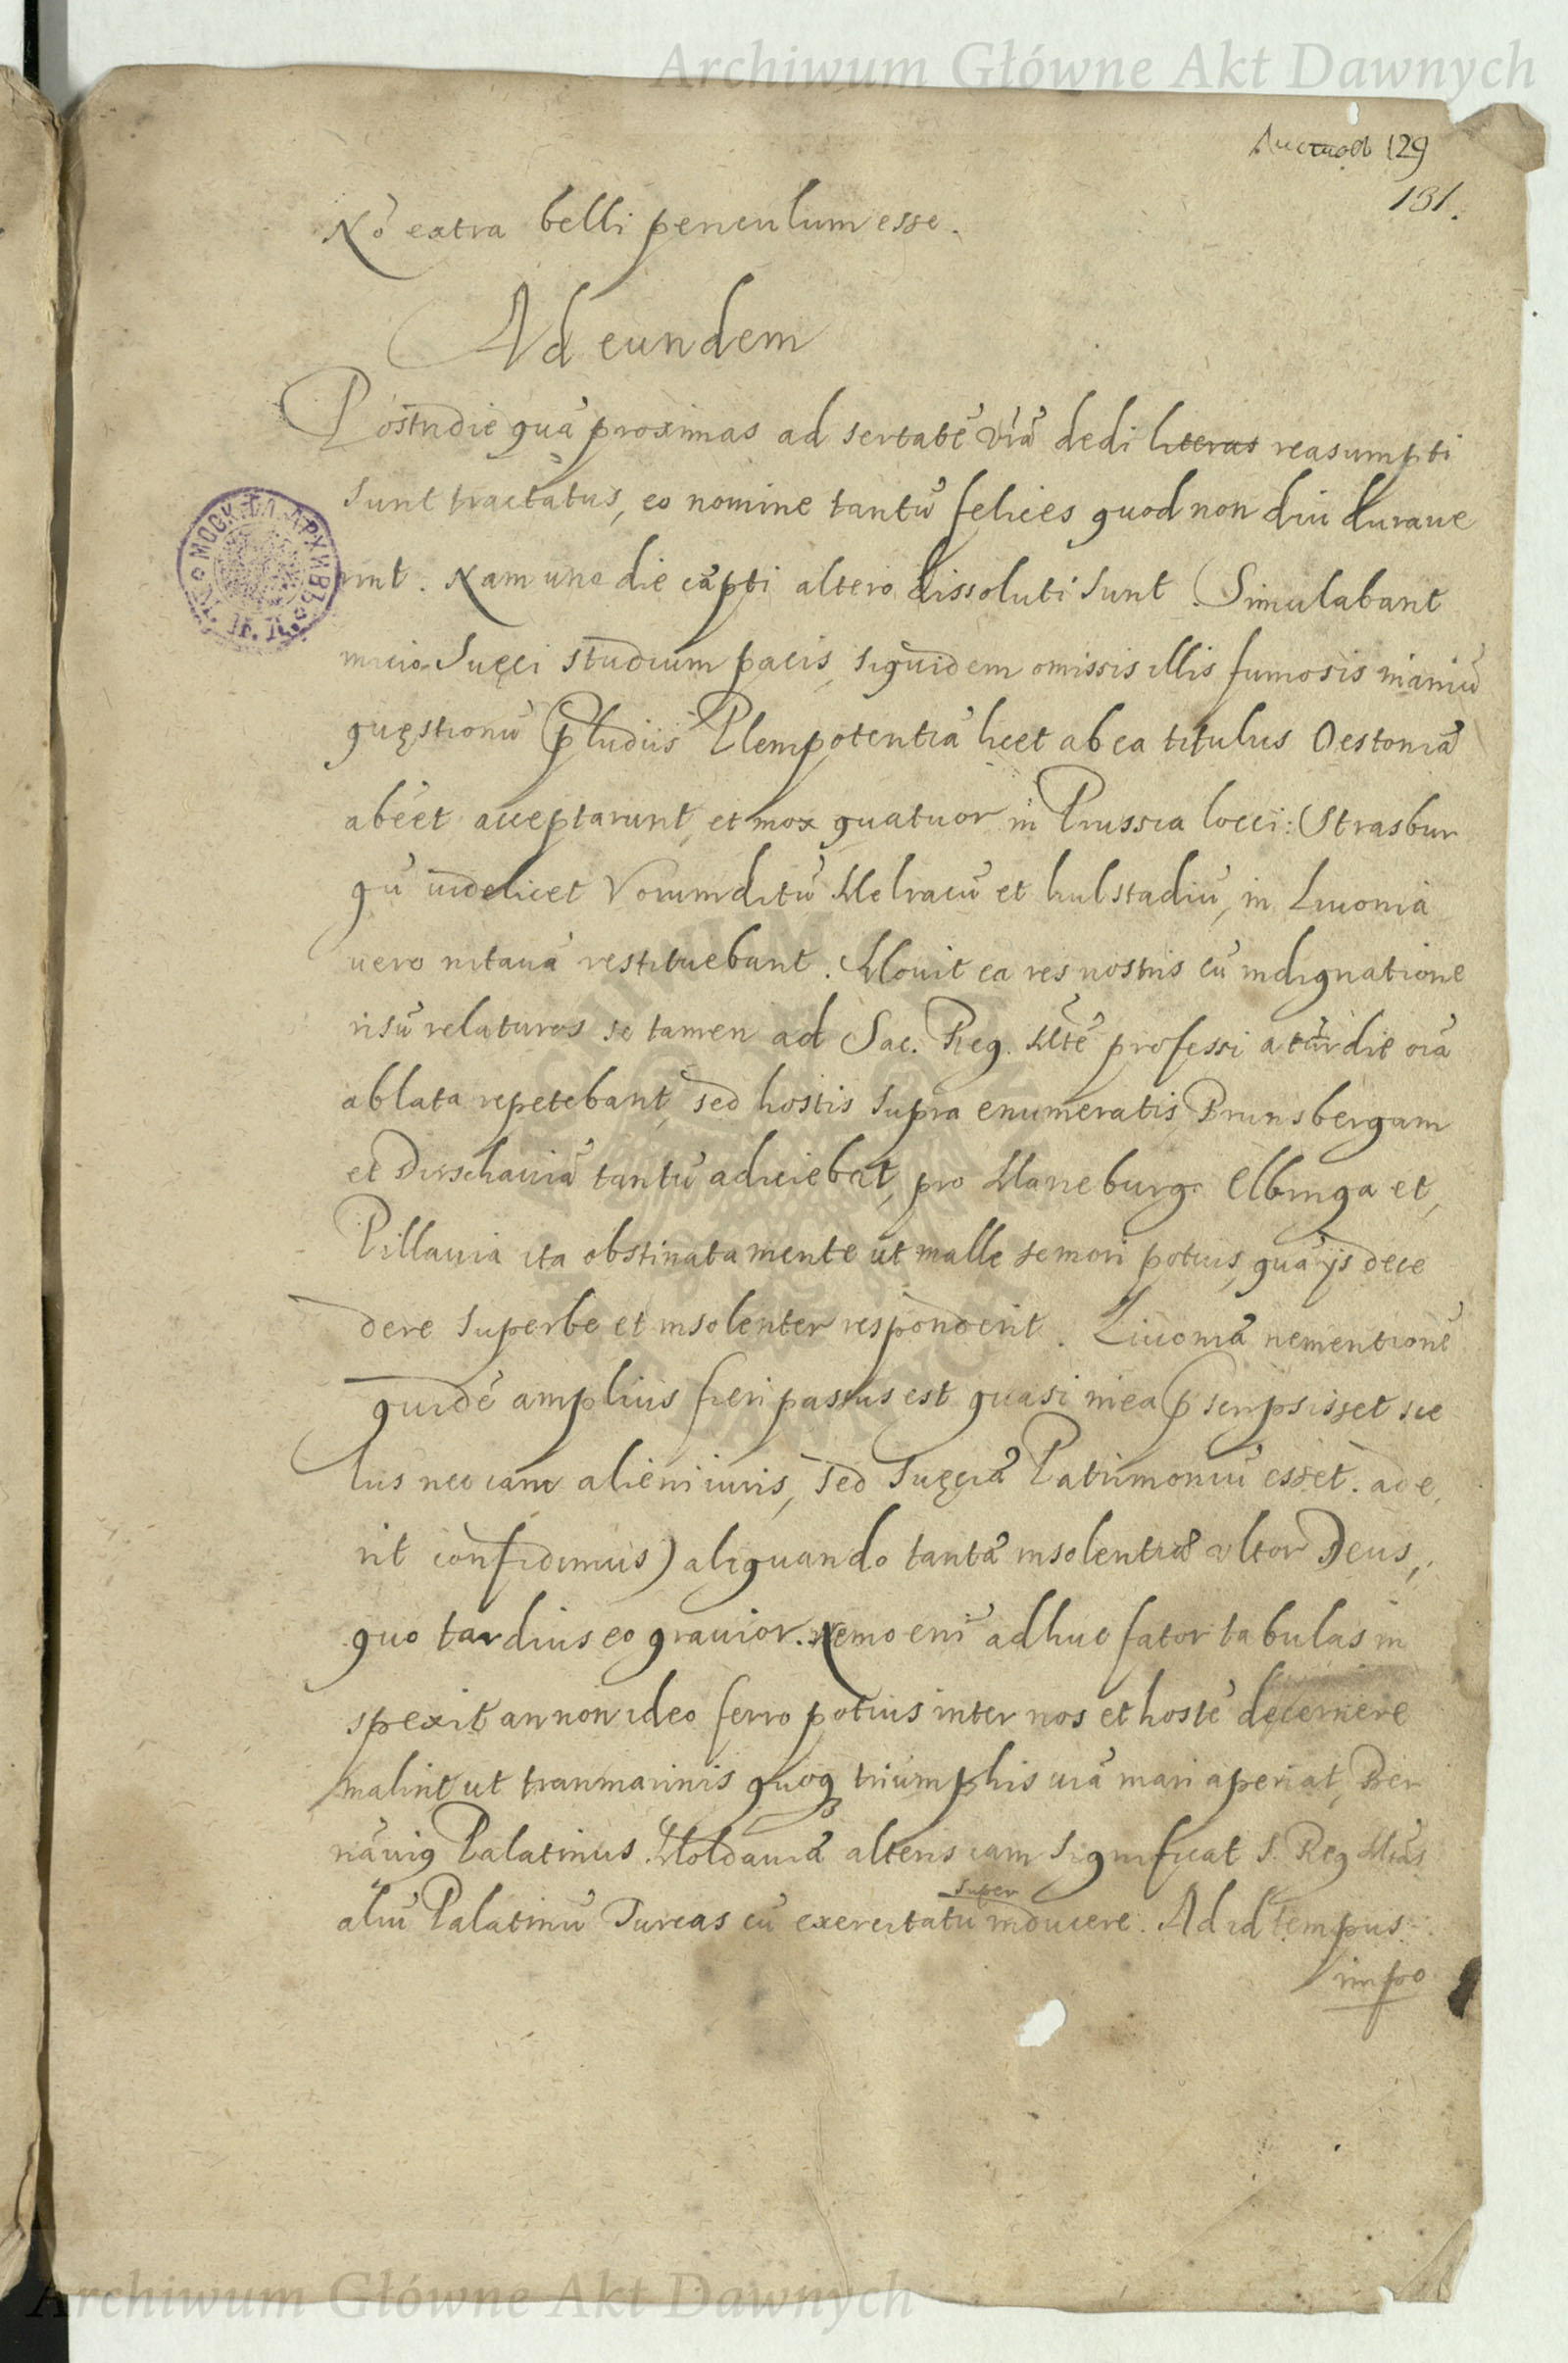 Archiwum Główne Akt Dawnych
Листовъ 129
131.
Nõ extra belli periculum esse.
Ad eundem
Postridie quã proximas ad sertatẽ vrã dedi literas reasumpti
sunt tractatus, eo nomine tantũ felices quod non diu duraue
runt. Nam uno die cæpti altero dissoluti sunt. Simulabant
inicio Suęci studium pacis, siquidem omissis illis fumosis inaniũ
quęstionũ p̃ludiis Plenipotentiã licet ab ea titulus Oestoniæ
abẽet acceptarunt, et mox quatuor in Prussia locci: Strasbur
gũ uidelicet Vorumditũ Melracũ et hulstadiũ, in Liuonia
uero mitauã restituebant. Mouit ea res nostris cũ indignatione
risũ relaturos se tamen ad Sac. Reg. Mtẽ professi
ablata repetebant, sed hostis supra enumeratis Brunsbergam
et Dirschauiã tantũ adiciebat, pro Marieburgo Elbinga et,
Pillauia ita obstinata mente ut malle se mori potius, quã ijs dece
dere superbe et insolenter responderit. Liuoniæ ne mentionẽ
quidẽ amplius fieri passus est quasi in ea p̃scripsisset sce
lus nec iam alieni iuris, sed Suęciæ Patrimoniũ esset. ade
rit confidimus) aliquando tantæ insolentiæ ultor Deus,
quo tardius eo grauior. Nemo enĩ adhuc fator tabulas in
spexit an non ideo ferro potius inter nos et hostẽ decernere
malint ut tranmarinis quoq triumphis uiã mari aperiat, Ber
nãuig Palatinus Moldauiæ alteris iam significat S. Reg Mtas
super
aliũ Palatinũ Turcas cũ exercitatu inducere. Ad id tempus
impo
МОСК. ГЛ. АРХИВЪ
ARCHIWUM GŁÓWNE AKT DAWNYCH
Archiwum Główne Akt Dawnych